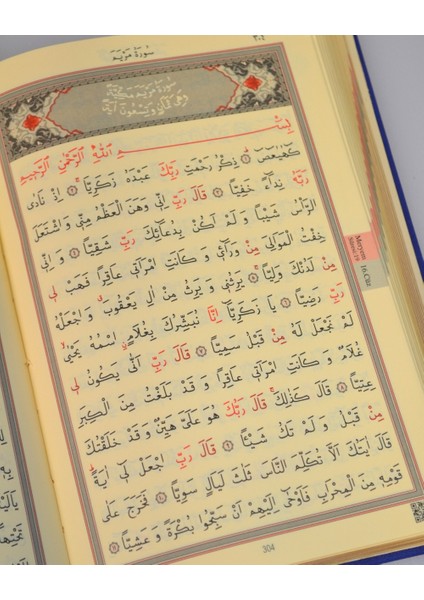 ٣٠٤
سُورَةُ مَرْيَمَ
سُورَةُ مَرْيَمَ مَكِّيَّةٌ
وَهِيَ ثَمَانٍ وَتِسْعُونَ آيَةً
بِسْــــــمِ اللّٰهِ الرَّحْمٰنِ الرَّحِيمِ
كٓهٰيٰعٓصٓ ۝ ذِكْرُ رَحْمَتِ رَبِّكَ عَبْدَهُ زَكَرِيَّا ۝ اِذْ نَادٰى
رَبَّهُ نِدَٓاءً خَفِيًّا ۝ قَالَ رَبِّ اِنّٖى وَهَنَ الْعَظْمُ مِنّٖى وَاشْتَعَلَ
الرَّاْسُ شَيْبًا وَلَمْ اَكُنْ بِدُعَٓائِكَ رَبِّ شَقِيًّا ۝ وَاِنّٖى
خِفْتُ الْمَوَالِىَ مِنْ وَرَٓائٖى وَكَانَتِ امْرَاَتٖى عَاقِرًا فَهَبْ لٖى
مِنْ لَدُنْكَ وَلِيًّا ۝ يَرِثُنٖى وَيَرِثُ مِنْ اٰلِ يَعْقُوبَ وَاجْعَلْهُ
رَبِّ رَضِيًّا ۝ يَا زَكَرِيَّٓا اِنَّا نُبَشِّرُكَ بِغُلَامٍ اسْمُهُ يَحْيٰى
لَمْ نَجْعَلْ لَهُ مِنْ قَبْلُ سَمِيًّا ۝ قَالَ رَبِّ اَنّٰى يَكُونُ لٖى
غُلَامٌ وَكَانَتِ امْرَاَتٖى عَاقِرًا وَقَدْ بَلَغْتُ مِنَ الْكِبَرِ
عِتِيًّا ۝ قَالَ كَذٰلِكَ قَالَ رَبُّكَ هُوَ عَلَىَّ هَيِّنٌ وَقَدْ خَلَقْتُكَ
مِنْ قَبْلُ وَلَمْ تَكُ شَيْئًا ۝ قَالَ رَبِّ اجْعَلْ لٖٓى اٰيَةً
قَالَ اٰيَتُكَ اَلَّا تُكَلِّمَ النَّاسَ ثَلٰثَ لَيَالٍ سَوِيًّا ۝ فَخَرَجَ عَلٰى
قَوْمِهٖ مِنَ الْمِحْرَابِ فَاَوْحٰٓى اِلَيْهِمْ اَنْ سَبِّحُوا بُكْرَةً وَعَشِيًّا ۝
304
Meryem
Sûresi 19
16.Cüz